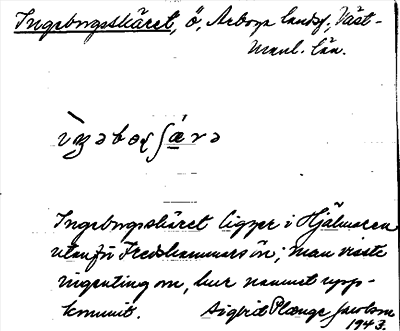 Ingeborgsskäret, ö, Arboga landsf., Väst-
manl. län.
Ingeborgsskäret ligger i Hjälmaren
utanför Fredshammarsön; man visste
ingenting om, hur namnet upp-
kommit. Sigfrid Plænge Jacobson
1943.